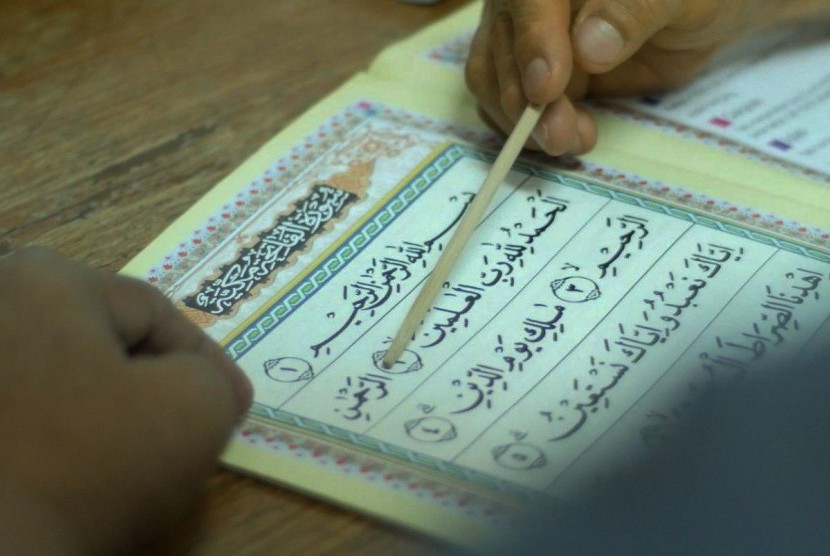 سورة الفاتحة مكية
بِسْمِ اللهِ الرَّحْمٰنِ الرَّحِيْمِ ١
اَلْحَمْدُ لِلّٰهِ رَبِّ الْعٰلَمِيْنَ ٢ الرَّحْمٰنِ
الرَّحِيْمِ ٣ مٰلِكِ يَوْمِ الدِّيْنِ ٤
اِيَّاكَ نَعْبُدُ وَاِيَّاكَ نَسْتَعِيْنُ ٥
اِهْدِنَا الصِّرَاطَ